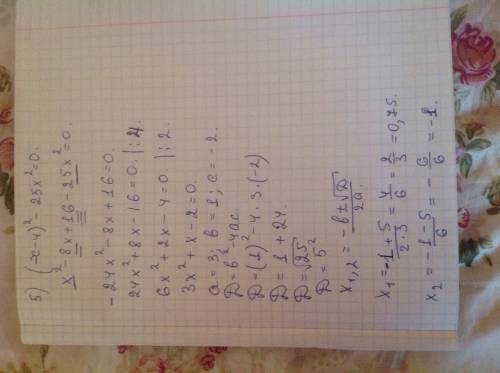 5) (x-4)²-25x²=0.
x²-8x+16-25x²=0.
-24x²-8x+16=0.
24x²+8x-16=0. |:4.
6x²+2x-4=0. |:2.
3x²+x-2=0.
a=3; b=1; c=-2.
D=b²-4ac
D=(1)²-4·3·(-2)
D=1+24.
D=√25
D=5²
x₁,₂=-b±√D/2a.
x₁=-1+5/2·3=4/6=2/3=0,75.
x₂=-1-5/6=-6/6=-1.